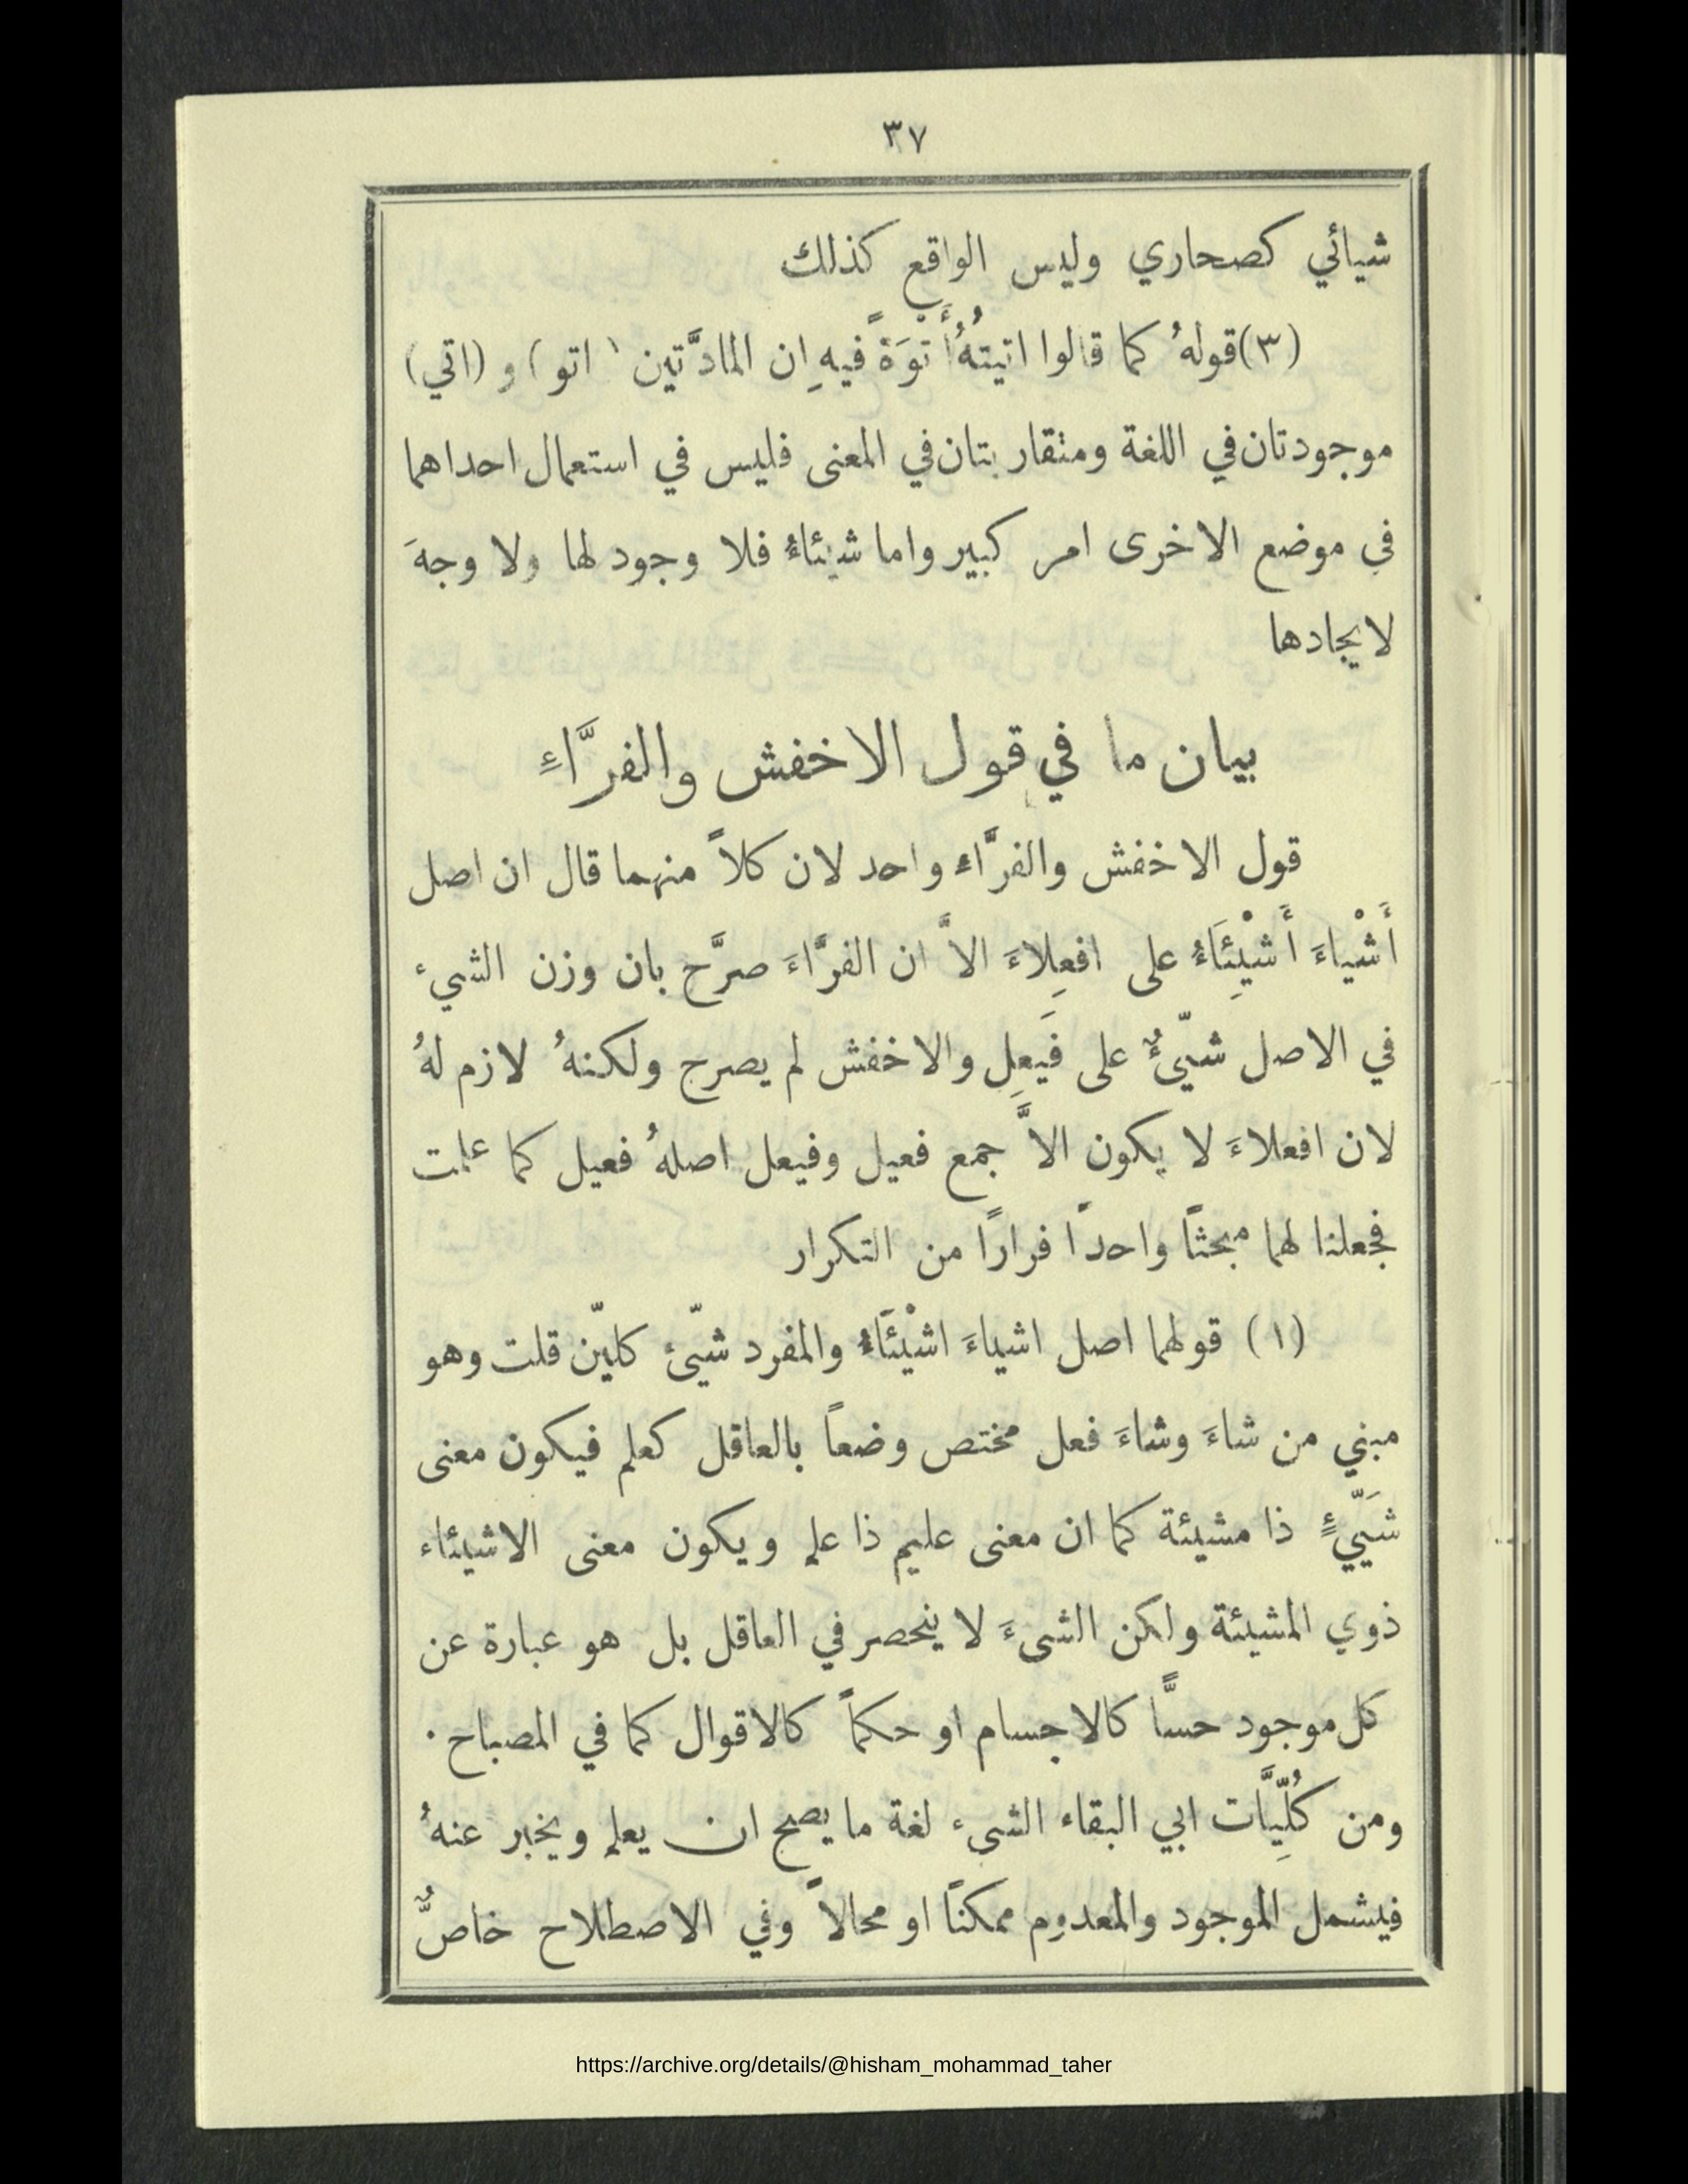 ٣٧
شيائي كصحاري وليس الواقع كذلك
(٣) قولهُ كما قالوا اتيتهُ أُتْوَةً فيهِ ان المادَّتين (اتو) و (اتي)
موجودتان في اللغة ومتقاربتان في المعنى فليس في استعمال احداهما
في موضع الاخرى امر كبير واما شيئاءُ فلا وجود لها ولا وجهَ
لايجادها
بيان ما في قول الاخفش والفرَّاءِ
قول الاخفش والفرَّاءِ واحد لان كلاً منهما قال ان اصل
أَشْياءَ أَشْيِئَاءُ على افعِلاءَ الاَّ ان الفرَّاءَ صرَّح بان وزن الشيء
في الاصل شيّئٌ على فَيعِل والاخفش لم يصرح ولكنهُ لازم لهُ
لان افعلاءَ لا يكون الاَّ جمع فعيل وفيعل اصلهُ فعيل كما علمت
فجعلنا لهما مبحثًا واحدًا فرارًا من التكرار
(١) قولهما اصل اشياءَ اشْيئَاءُ والمفرد شيّئ كليّن قلت وهو
مبني من شاءَ وشاءَ فعل مختص وضعاً بالعاقل كعلم فيكون معنى
شَيّيءٍ ذا مشيئة كما ان معنى عليم ذا علم ويكون معنى الاشيئاء
ذوي المشيئة ولكن الشيءَ لا ينحصر في العاقل بل هو عبارة عن
كل موجود حسًّا كالاجسام او حكماً كالاقوال كما في المصباح.
ومن كُلِّيَّات ابي البقاء الشيء لغة ما يصح ان يعلم ويخبر عنهُ
فيشمل الموجود والمعدوم ممكنًا او محالاً وفي الاصطلاح خاصٌّ
https://archive.org/details/@hisham_mohammad_taher